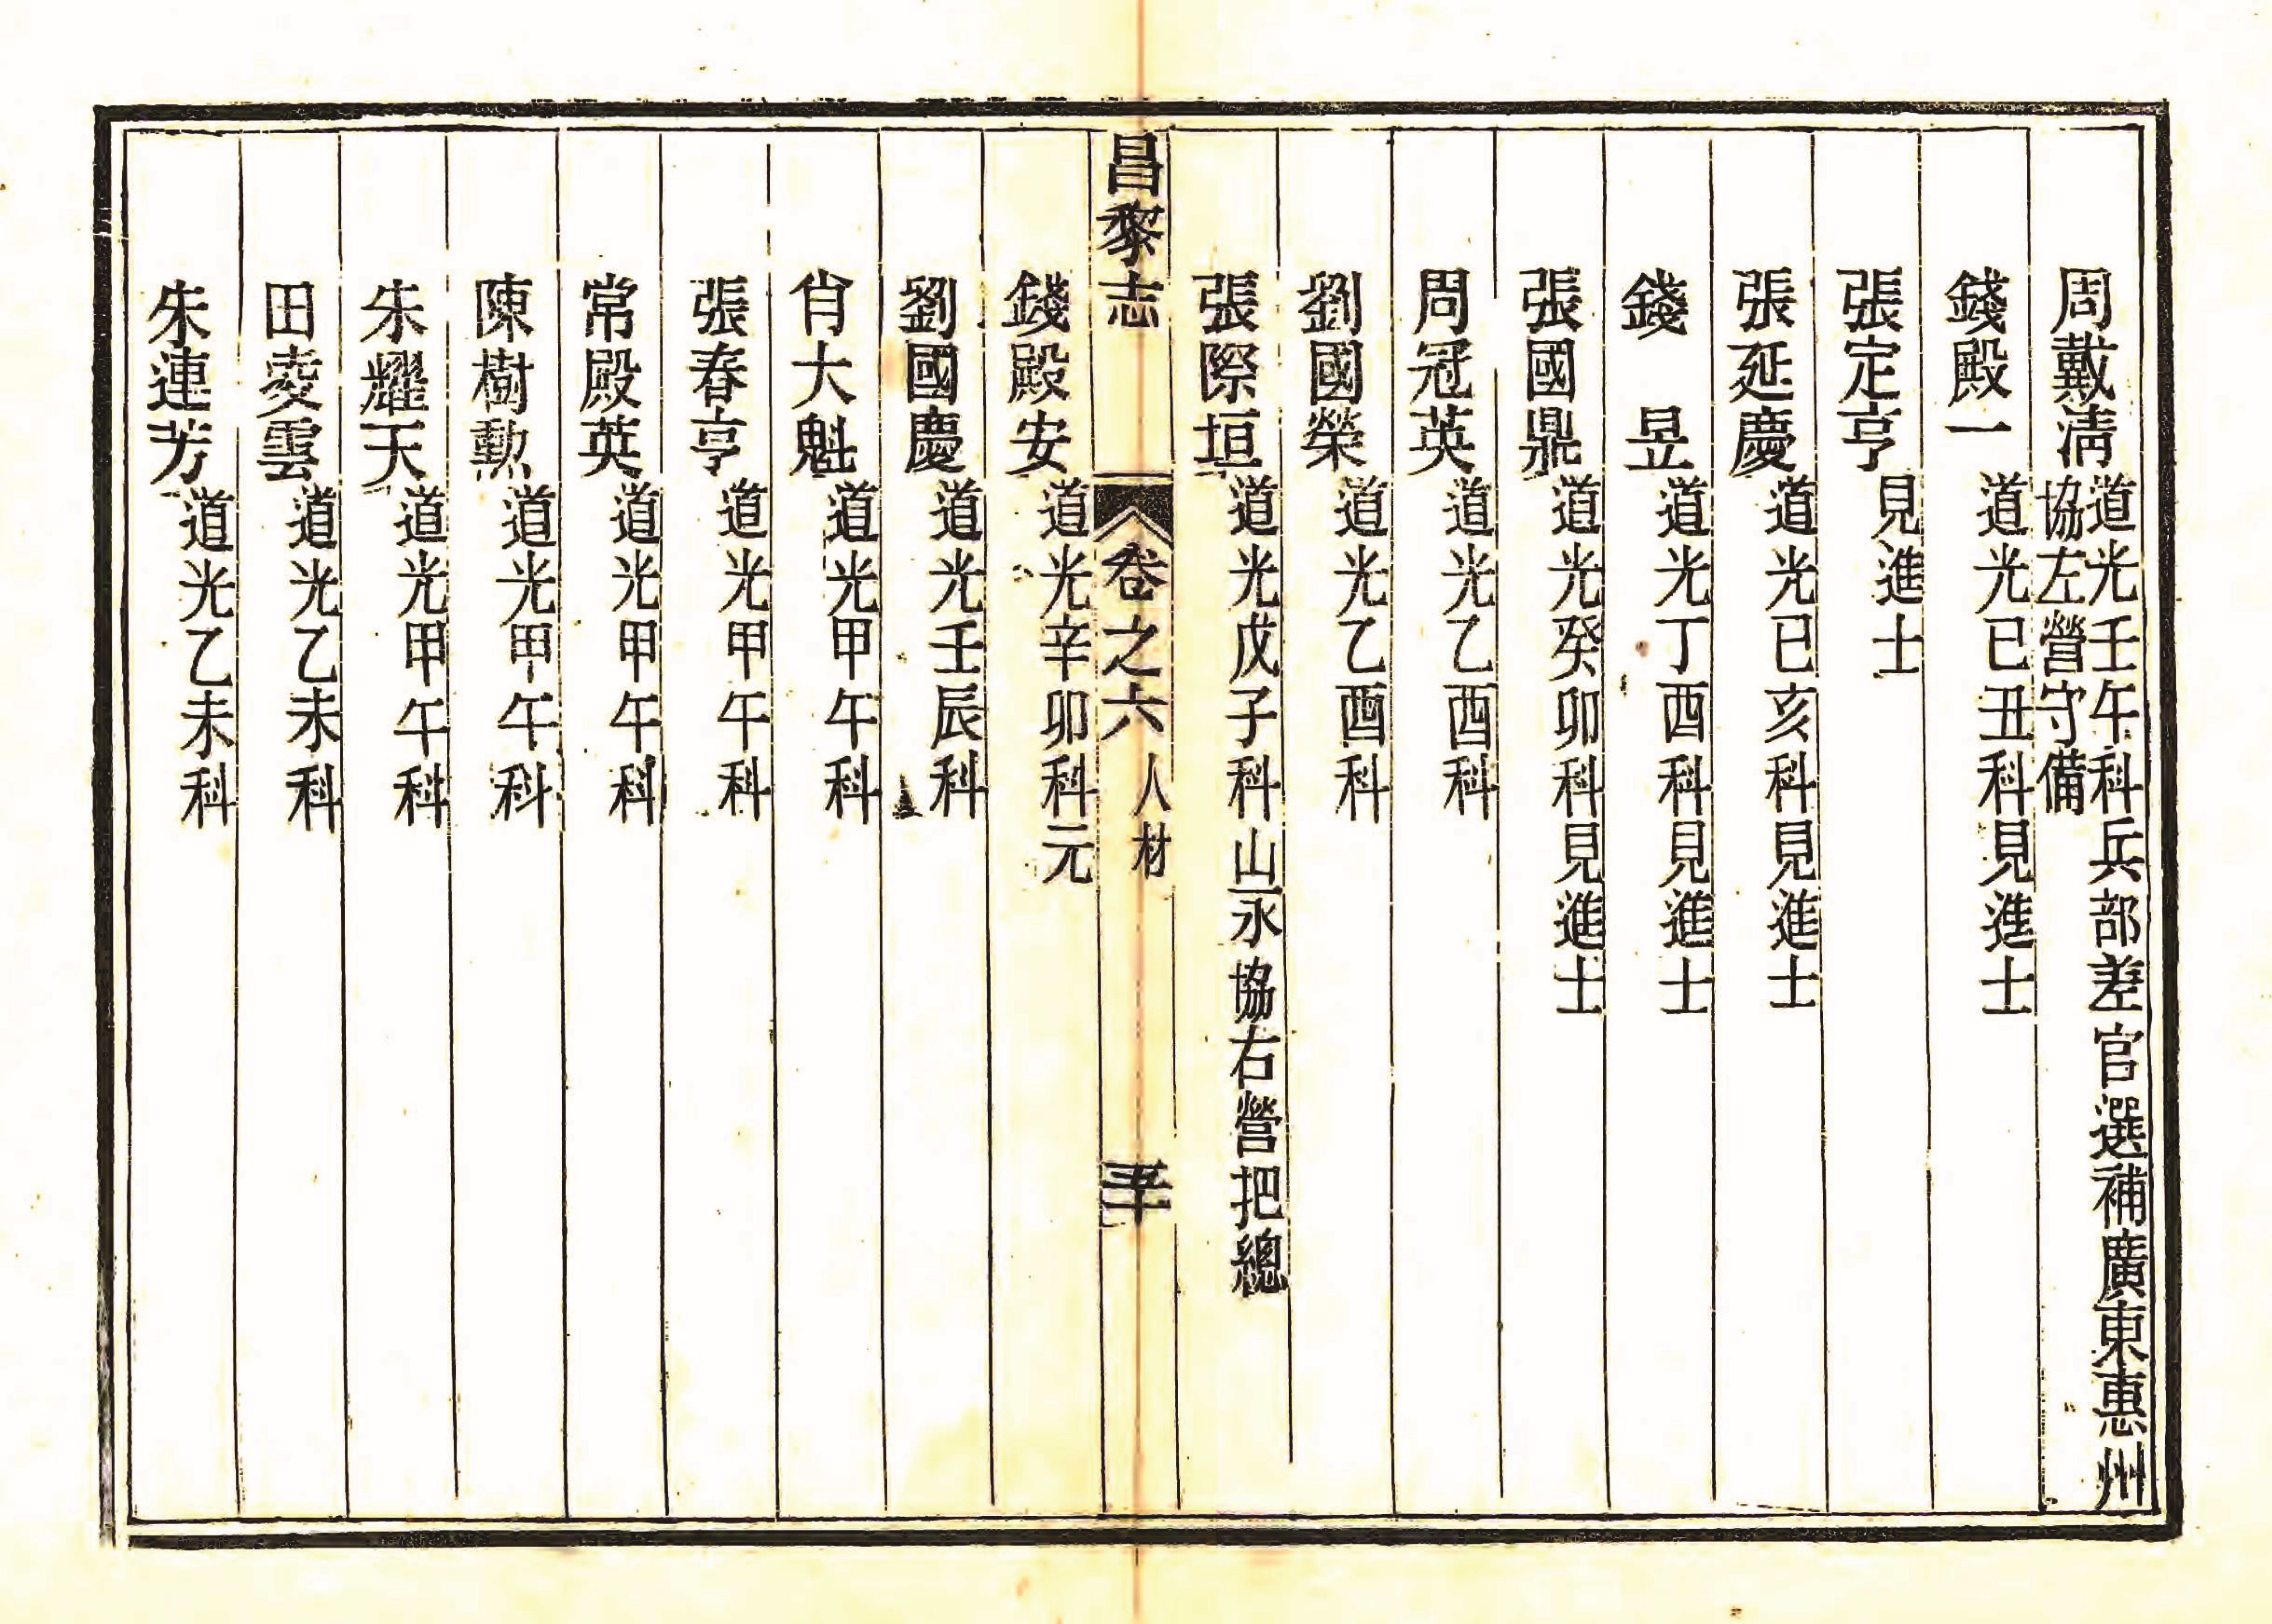 周戴淸道光壬午科兵部差官選補廣東惠州
協左營守備
錢殿一道光已丑科見進士
張定亨見進士
張延慶道光已亥科見進士
錢　昱道光丁酉科見進士
張國鼎道光癸卯科見進士
周冠英道光乙酉科
劉國榮道光乙酉科
張際垣道光戊子科山永協右營把總
昌黎志　卷之六　人材
錢殿安道光辛卯科元
劉國慶道光壬辰科
肖大魁道光甲午科
張春亨道光甲午科
常殿英道光甲午科
陳樹勲道光甲午科
朱耀天道光甲午科
田夌雲道光乙未科
朱連芳道光乙未科